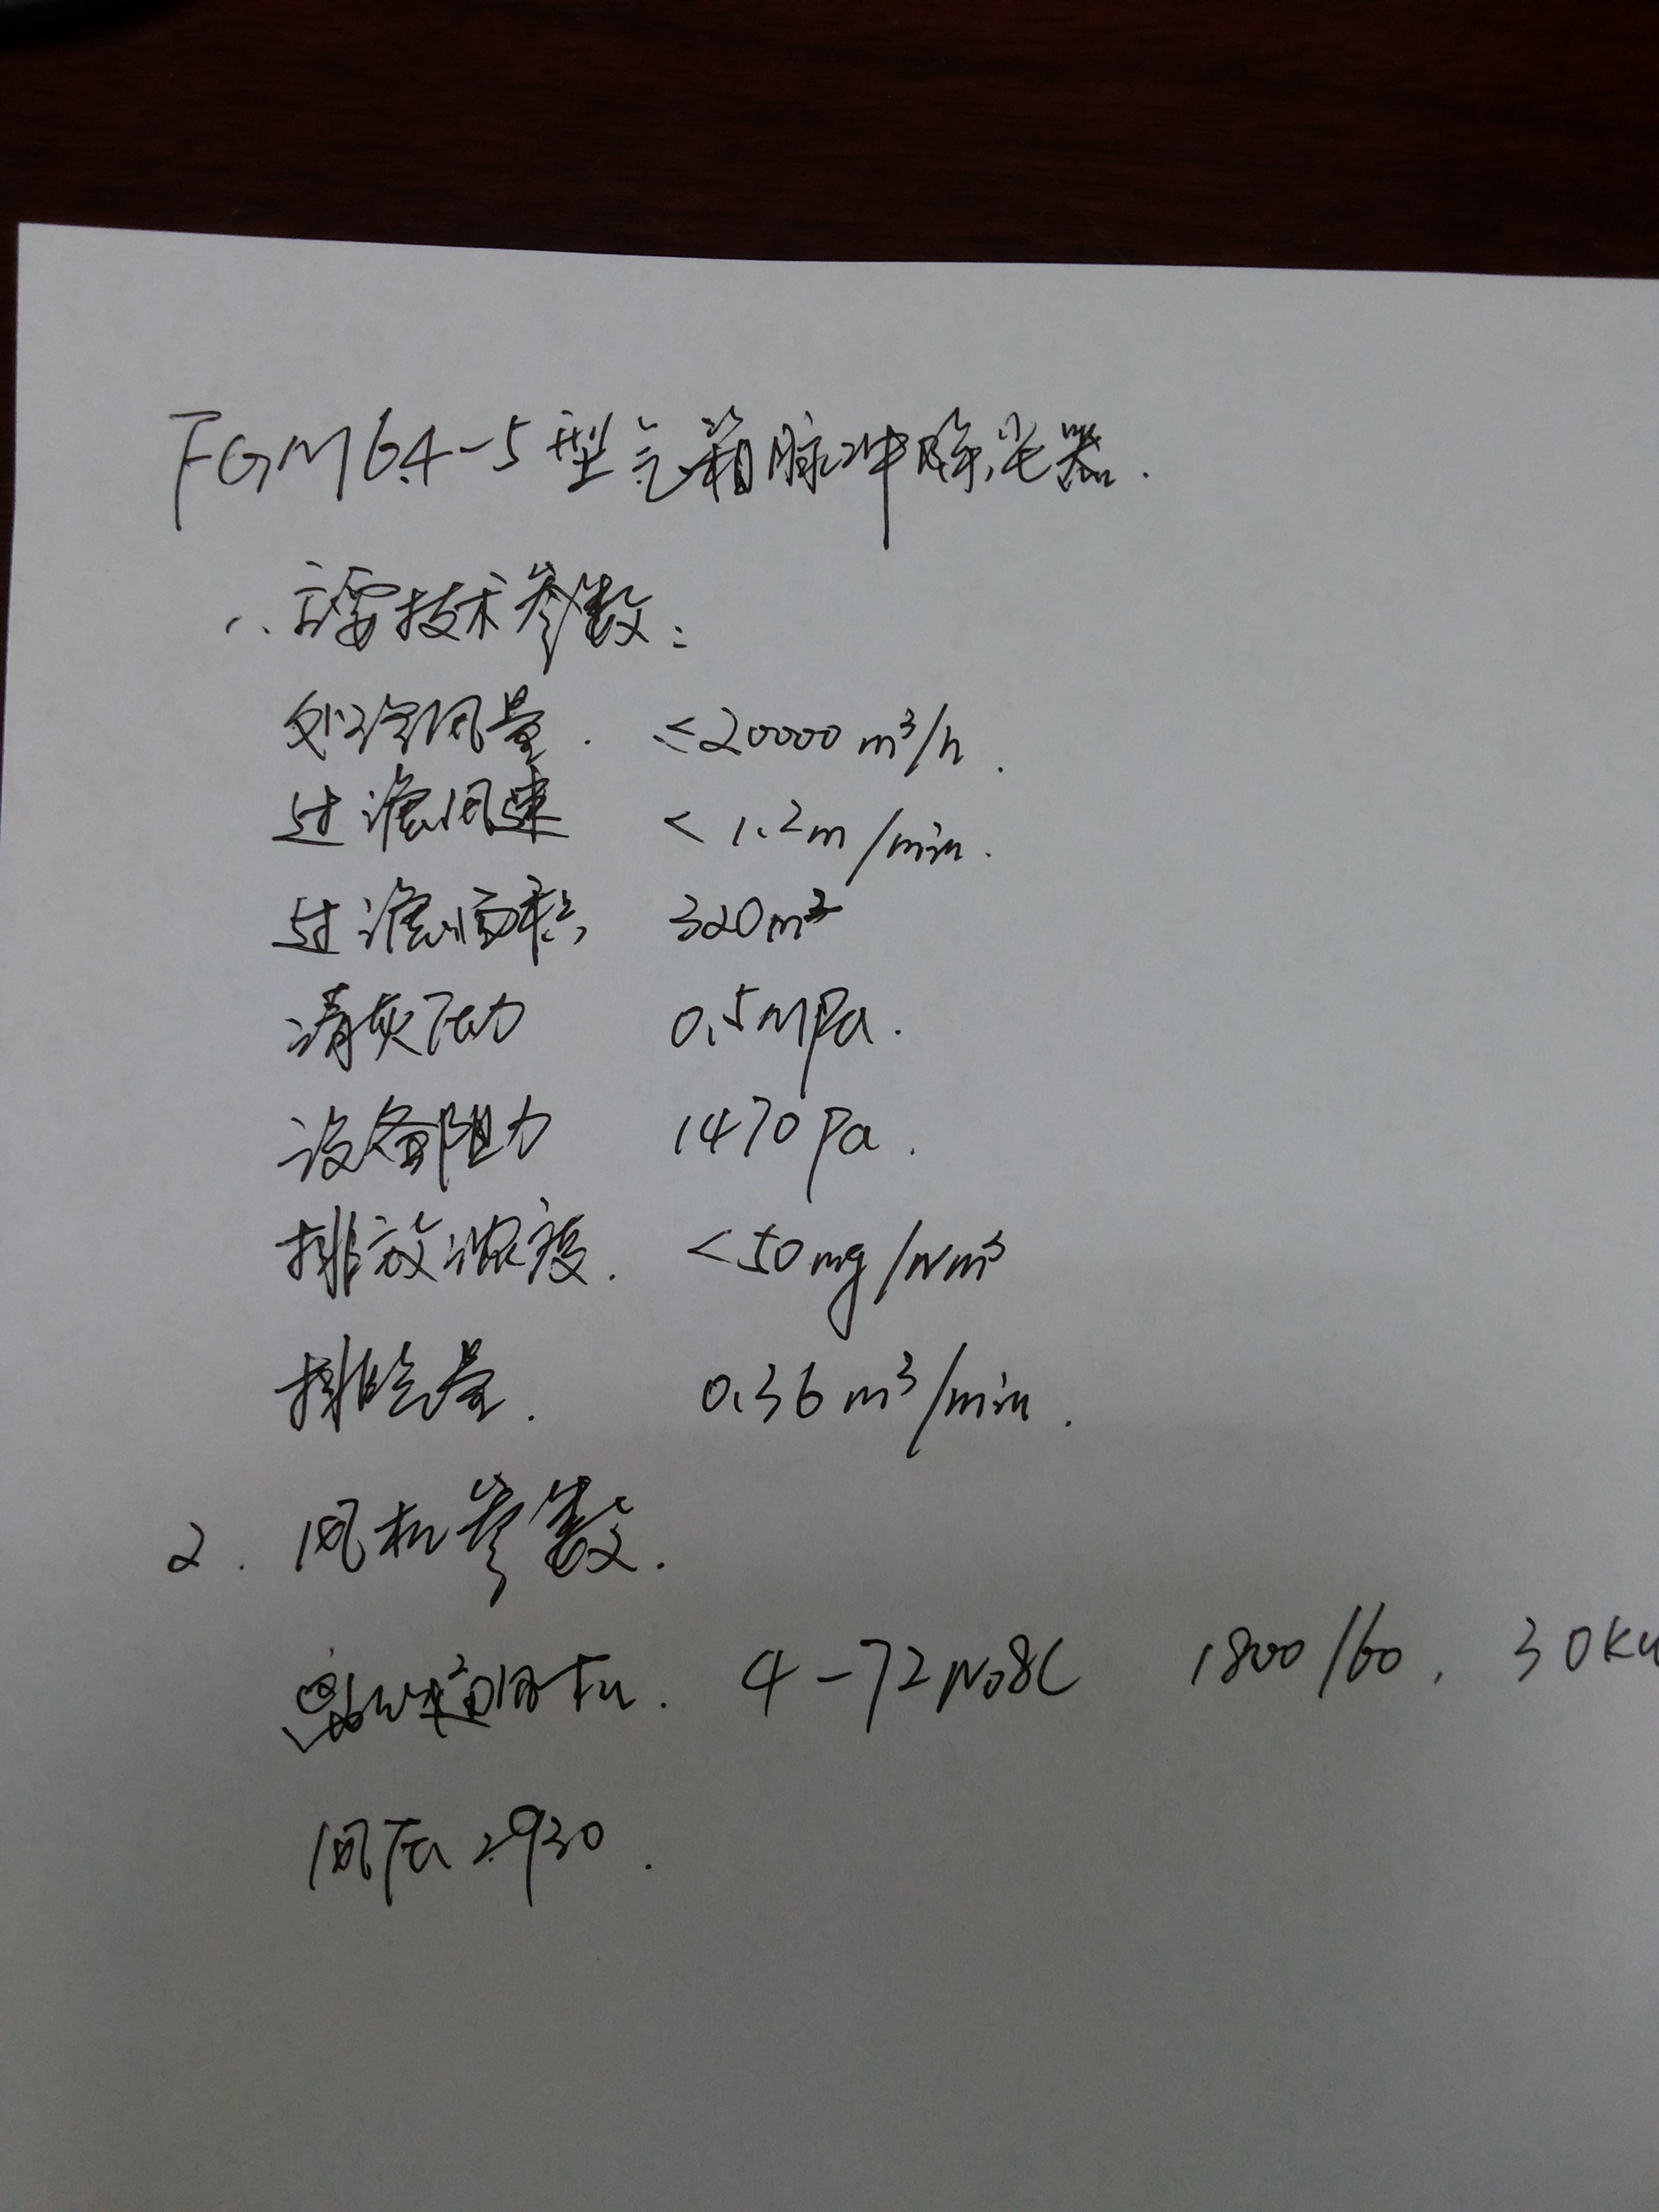 FGM64-5型气箱脉冲除尘器.
1. 主要技术参数:
处理风量. ≤20000m³/h.
过滤风速 <1.2m/min.
过滤面积 320m²
清灰压力 0.5MPa.
设备阻力 1470Pa.
排放浓度. <50mg/Nm³
耗气量. 0.36m³/min.
2. 风机参数.
4-72No8C 1800/160. 30KW
风压2930.